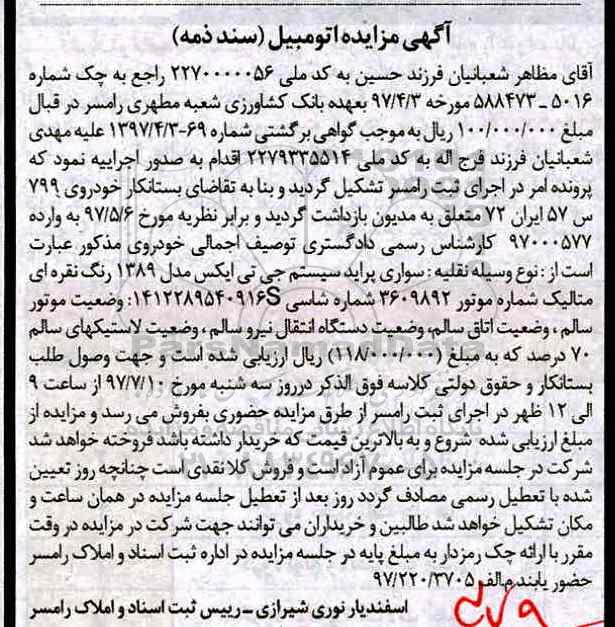 آگهی مزایده اتومبیل (سند ذمه)
آقای مظاهر شعبانیان فرزند حسین به کد ملی ۲۲۷۰۰۰۰۰۵۶ راجع به چک شماره
۵۰۱۶ ـ ۵۸۸۴۷۳ مورخه ۹۷/۴/۳ بعهده بانک کشاورزی شعبه مطهری رامسر در قبال
مبلغ ۱۰۰/۰۰۰/۰۰۰ ریال به موجب گواهی برگشتی شماره ۶۹-۱۳۹۷/۴/۳ علیه مهدی
شعبانیان فرزند فرج اله به کد ملی ۲۲۷۹۳۳۵۵۱۴ اقدام به صدور اجراییه نمود که
پرونده امر در اجرای ثبت رامسر تشکیل گردید و بنا به تقاضای بستانکار خودروی ۷۹۹
س ۵۷ ایران ۷۲ متعلق به مدیون بازداشت گردید و برابر نظریه مورخ ۹۷/۵/۶ به وارده
۹۷۰۰۰۵۷۷ کارشناس رسمی دادگستری توصیف اجمالی خودروی مذکور عبارت
است از : نوع وسیله نقلیه : سواری پراید سیستم جی تی ایکس مدل ۱۳۸۹ رنگ نقره ای
متالیک شماره موتور ۳۶۰۹۸۹۲ شماره شاسی S۱۴۱۲۲۸۹۵۴۰۹۱۶: وضعیت موتور
سالم ، وضعیت اتاق سالم، وضعیت دستگاه انتقال نیرو سالم ، وضعیت لاستیکهای سالم
۷۰ درصد که به مبلغ (۱۱۸/۰۰۰/۰۰۰) ریال ارزیابی شده است و جهت وصول طلب
بستانکار و حقوق دولتی کلاسه فوق الذکر درروز سه شنبه مورخ ۹۷/۷/۱۰ از ساعت ۹
الی ۱۲ ظهر در اجرای ثبت رامسر از طرق مزایده حضوری بفروش می رسد و مزایده از
مبلغ ارزیابی شده شروع و به بالاترین قیمت که خریدار داشته باشد فروخته خواهد شد
شرکت در جلسه مزایده برای عموم آزاد است و فروش کلا نقدی است چنانچه روز تعیین
شده با تعطیل رسمی مصادف گردد روز بعد از تعطیل جلسه مزایده در همان ساعت و
مکان تشکیل خواهد شد طالبین و خریداران می توانند جهت شرکت در مزایده در وقت
مقرر با ارائه چک رمزدار به مبلغ پایه در جلسه مزایده در اداره ثبت اسناد و املاک رامسر
حضور یابند.م.الف ۹۷/۲۲۰/۳۷۰۵
اسفندیار نوری شیرازی ـ رییس ثبت اسناد و املاک رامسر